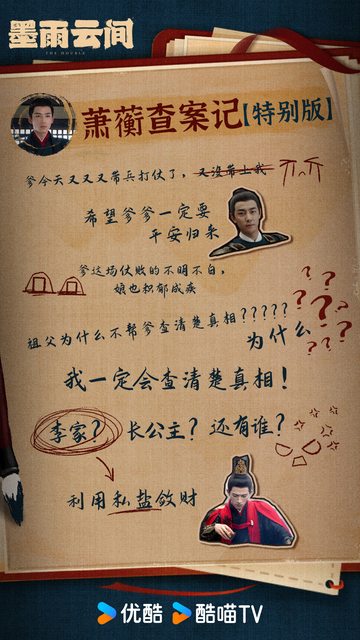 墨雨云间
THE DOUBLE
萧蘅查案记【特别版】
爹今天又又又带兵打仗了，又没带上我
希望爹爹一定要
平安归来
爹这场仗败的不明不白，
娘也积郁成疾
祖父为什么不帮爹查清楚真相?????
为什么
????
我一定会查清楚真相！
李家？长公主？还有谁？
利用私盐敛财
优酷 酷喵TV